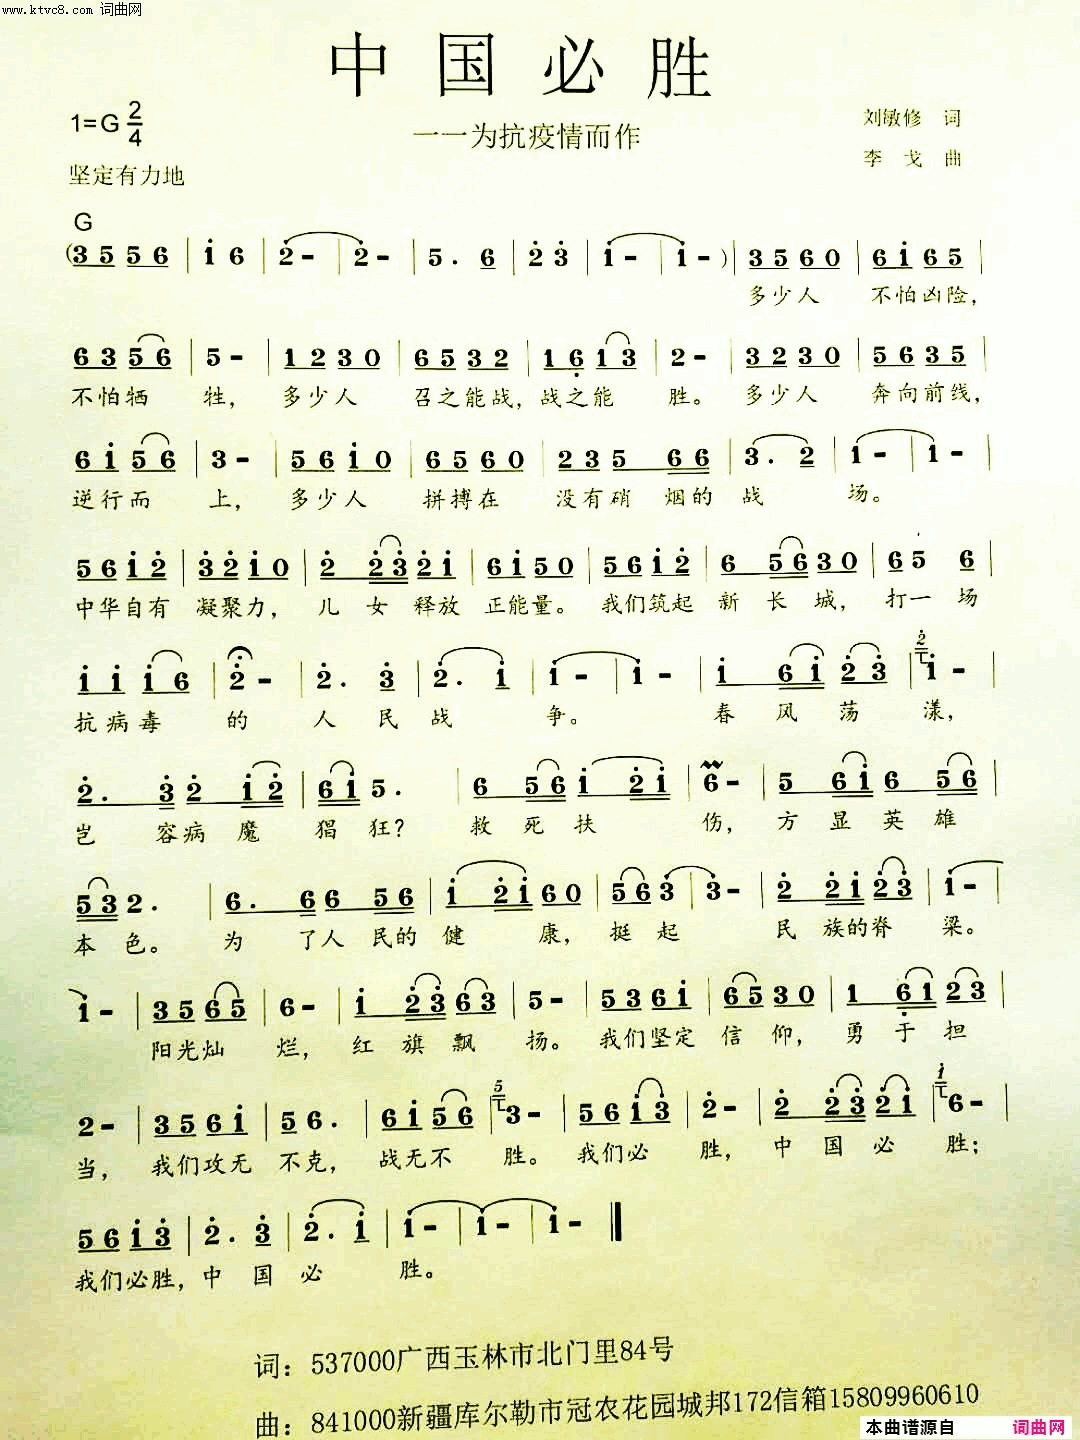 www.ktvc8.com 词曲网
中国必胜
1=G 2/4
——为抗疫情而作
刘敏修 词
李戈 曲
坚定有力地
G
(3 5 5 6 | i 6 | 2 - | 2 - | 5 . 6 | 2 3 | i - | i - ) | 3 5 6 0 | 6 i 6 5 |
多少人 不怕凶险,
6 3 5 6 | 5 - | 1 2 3 0 | 6 5 3 2 | 1 6 1 3 | 2 - | 3 2 3 0 | 5 6 3 5 |
不怕牺 牲, 多少人 召之能战, 战之能 胜。 多少人 奔向前线,
6 i 5 6 | 3 - | 5 6 i 0 | 6 5 6 0 | 2 3 5 6 6 | 3 . 2 | i - | i - |
逆行而 上, 多少人 拼搏在 没有硝 烟的 战 场。
5 6 i 2 | 3 2 i 0 | 2 2 3 2 i | 6 i 5 0 | 5 6 i 2 | 6 5 6 3 0 | 6 5 6 |
中华自有 凝聚力, 儿 女 释放 正能量。 我们筑起 新 长 城, 打一 场
i i i 6 | 2 - | 2 . 3 | 2 . i | i - | i - | i 6 i 2 3 | 2 i - |
抗病毒 的 人 民 战 争。 春 风 荡 漾,
2 . 3 2 i 2 | 6 i 5 . | 6 5 6 i 2 i | 6 - | 5 6 i 6 5 6 |
岂 容病 魔 猖 狂? 救 死 扶 伤, 方 显 英 雄
5 3 2 . | 6 . 6 6 5 6 | i 2 i 6 0 | 5 6 3 | 3 - | 2 2 i 2 3 | i - |
本 色。 为 了人 民的 健 康, 挺 起 民 族的脊 梁。
i - | 3 5 6 5 | 6 - | i 2 3 6 3 | 5 - | 5 3 6 i | 6 5 3 0 | 1 6 1 2 3 |
阳光灿 烂, 红 旗 飘 扬。 我们坚定 信 仰, 勇 于 担
2 - | 3 5 6 i | 5 6 . | 6 i 5 6 | 5 3 - | 5 6 i 3 | 2 - | 2 2 3 2 i | i 6 - |
当, 我们攻无 不克, 战无不 胜。 我们必 胜, 中 国 必 胜;
5 6 i 3 | 2 . 3 | 2 . i | i - | i - | i - ‖
我们必胜, 中 国 必 胜。
词: 537000广西玉林市北门里84号
曲: 841000新疆库尔勒市冠农花园城邦172信箱15809960610
本曲谱源自 词曲网